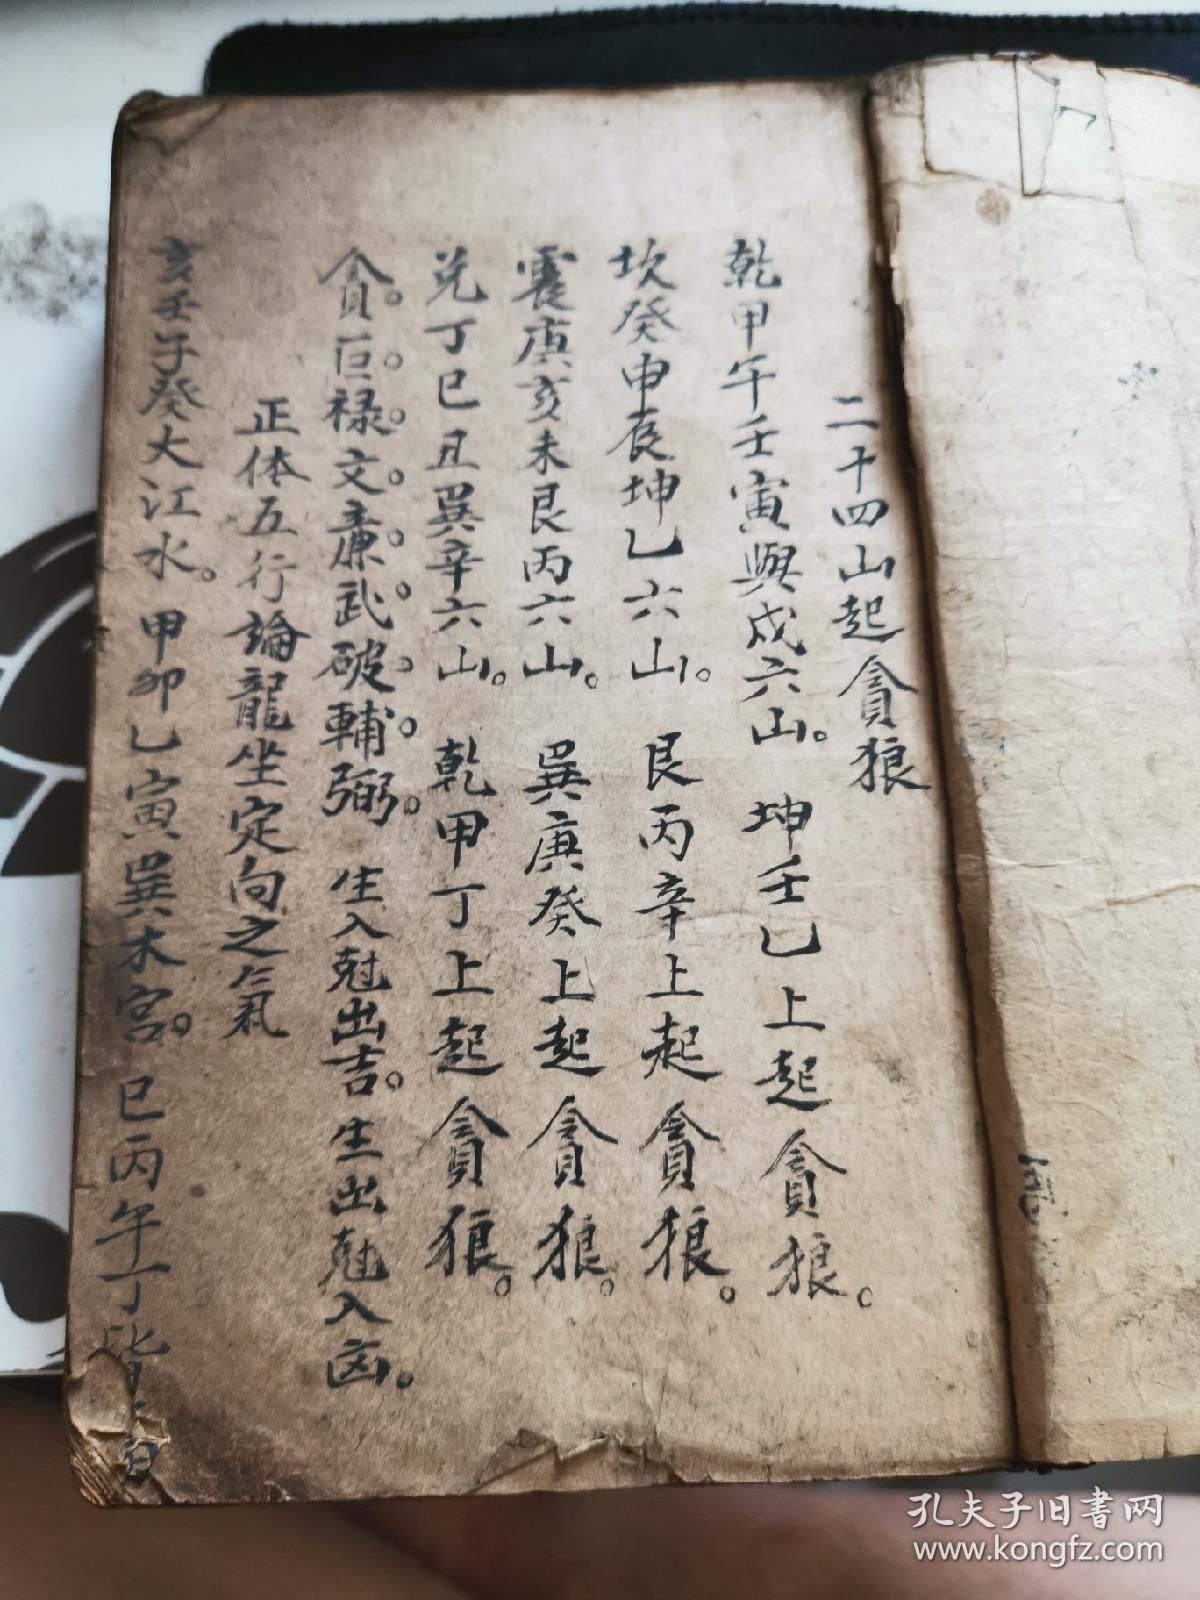 二十四山起貪狼
乾甲午壬寅與戌六山。坤壬乙上起貪狼。
坎癸申辰坤乙六山。艮丙辛上起貪狼。
震庚亥未艮丙六山。巽庚癸上起貪狼。
兌丁巳丑巽辛六山。乾甲丁上起貪狼。
貪。巨。祿。文。廉。武。破。輔。弼。生入尅出吉。生出尅入凶。
正体五行論龍坐定向之氣
亥壬子癸大江水。甲卯乙寅巽木宮。巳丙午丁皆
孔夫子旧书网
www.kongfz.com